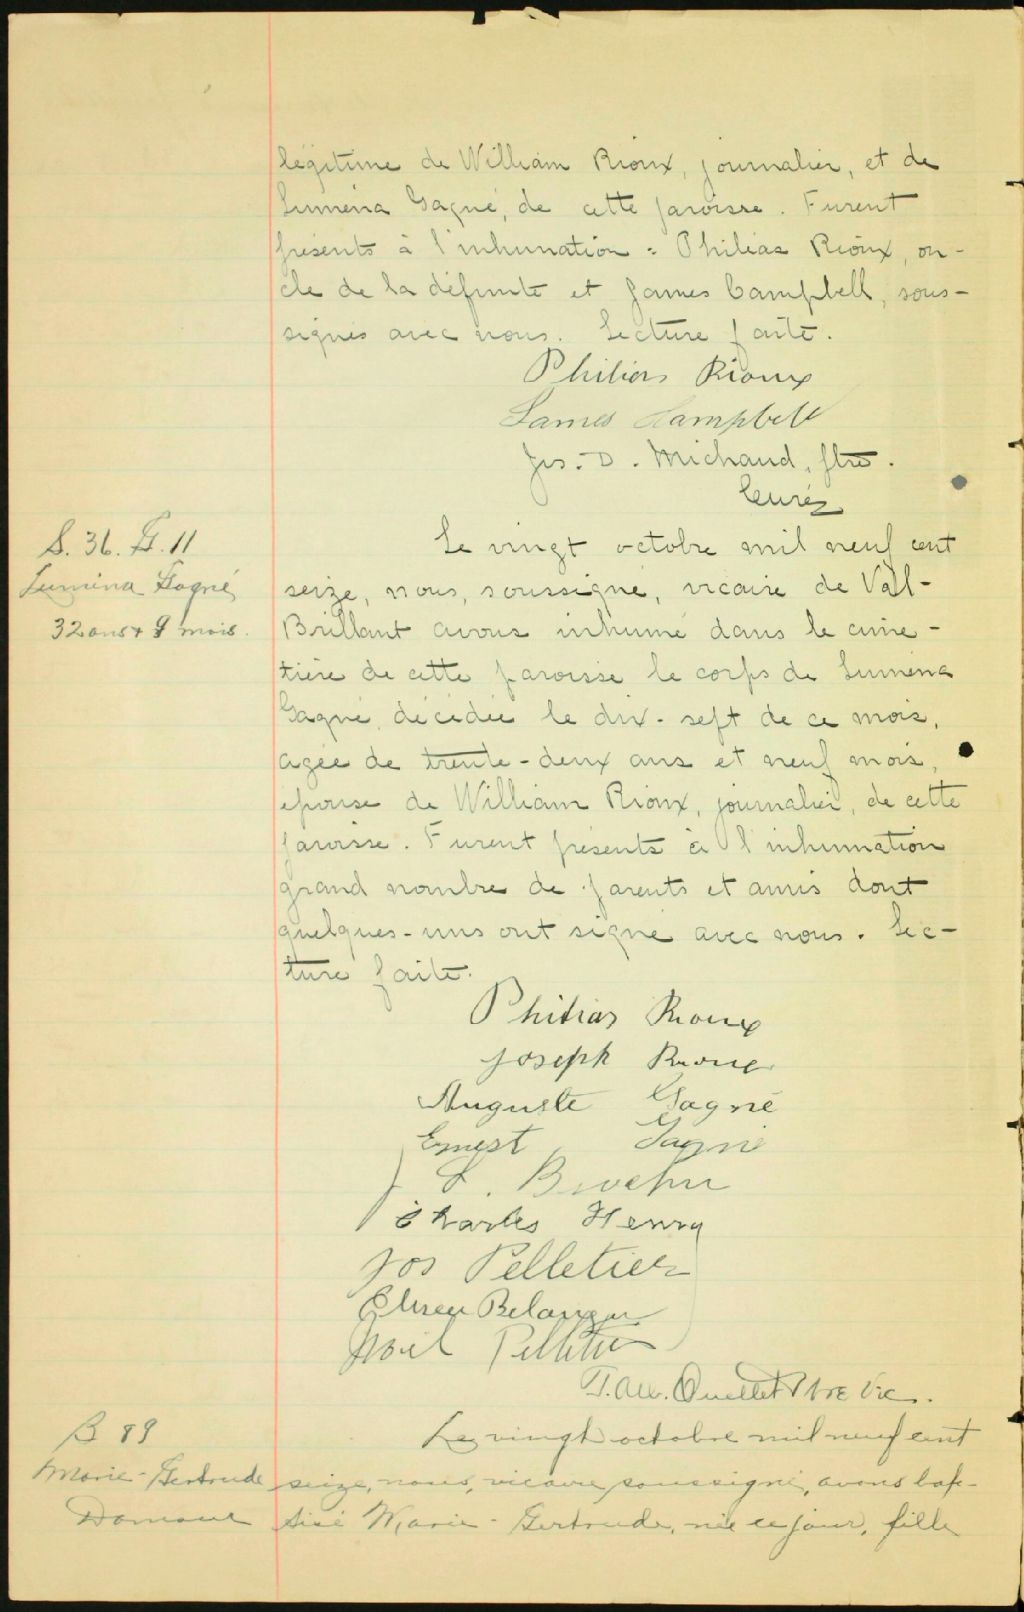 légitime de William Rioux, journalier, et de
Luména Gagné, de cette paroisse. Furent
présents à l'inhumation : Philias Rioux, on-
cle de la défunte et James Campbell, sous-
signés avec nous. Lecture faite.
Philias Rioux
James Campbell
Jos. D. Michaud, ptre.
Curé
S. 36. G. 11
Lumina Gagné
32 ans + 9 mois.
Le vingt octobre mil neuf cent
seize, nous, soussigné, vicaire de Val-
Brillant avons inhumé dans le cime-
tière de cette paroisse le corps de Luména
Gagné, décédée le dix-sept de ce mois,
agée de trente-deux ans et neuf mois,
épouse de William Rioux, journalier, de cette
paroisse. Furent présents à l'inhumation
grand nombre de parents et amis dont
quelques-uns ont signé avec nous. Lec-
ture faite.
Philias Rioux
Joseph Rioux
Auguste Gagné
Ernest Gagné
Charles Henry
Jos Pelletier
Elisée Belanger
Noël Pelletier
Ouellet Ptre Vic.
B 89
Marie-Gertrude
Le vingt octobre mil neuf cent
seize, nous, vicaire soussigné, avons bap-
tisé Marie-Gertrude, née ce jour, fille